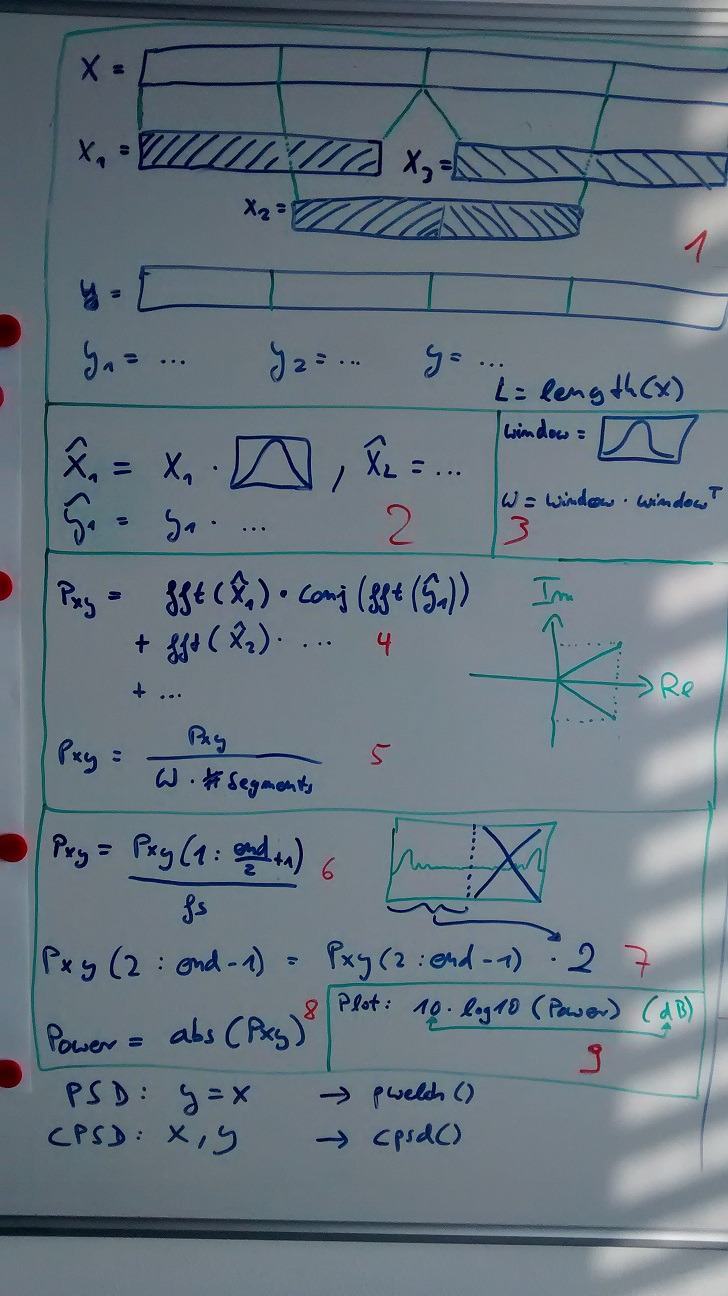 X =
X₁ =
X₃ =
X₂ =
1
y =
y₁ = ... y₂ = ... y = ...
L = length(x)
X̂₁ = X₁ · , X̂₂ = ...
ŷ₁ = y₁ · ...
2
window =
W = window · windowᵀ
3
Pxy = fft(X̂₁) · conj(fft(ŷ₁))
+ fft(X̂₂) · ...
4
+ ...
Im
Re
Pxy = Pxy / W · # Segments
5
Pxy = Pxy(1 : end/2 +1) / fs
6
Pxy(2 : end-1) = Pxy(2 : end-1) · 2
7
Power = abs(Pxy)
8
Plot: 10 · log10 (Power) (dB)
9
PSD: y = x → pwelch()
CPSD: x, y → cpsd()